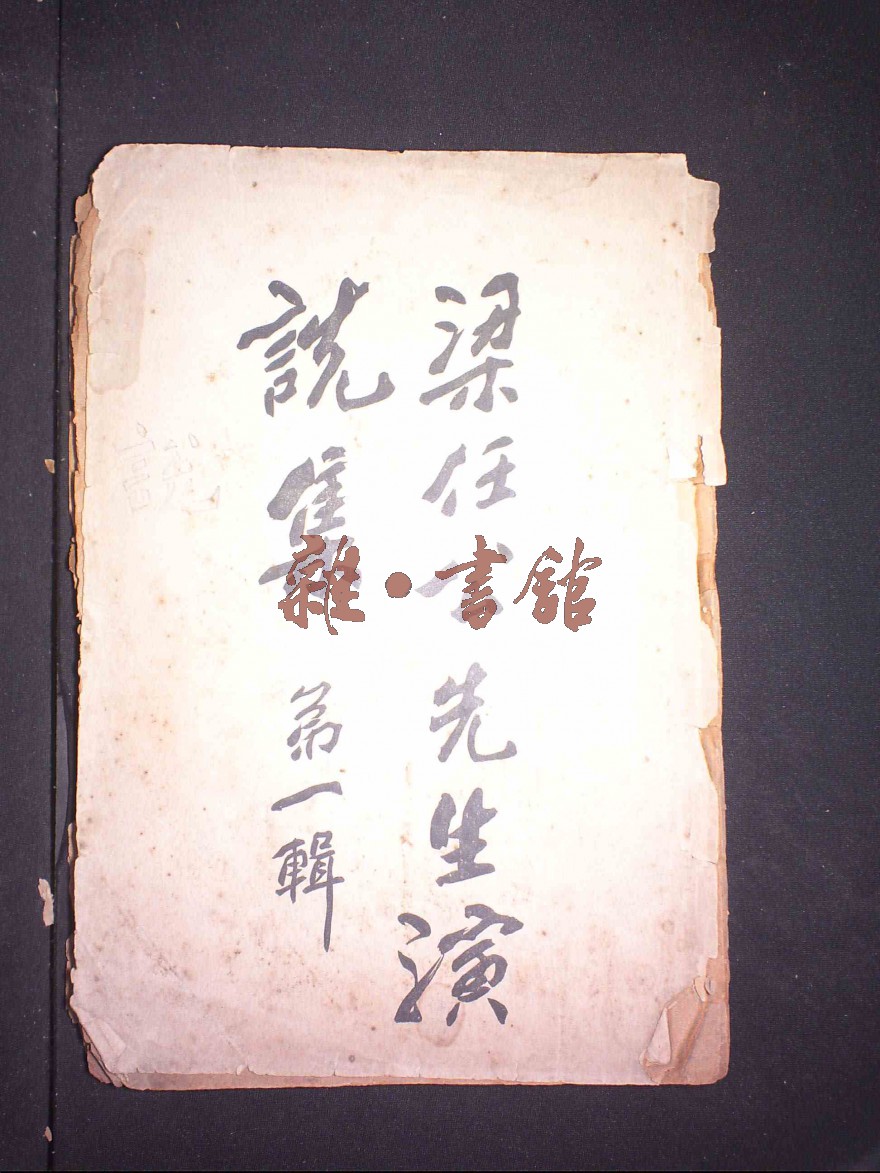 梁任公先生演
說集 第一輯
雜·書館
說